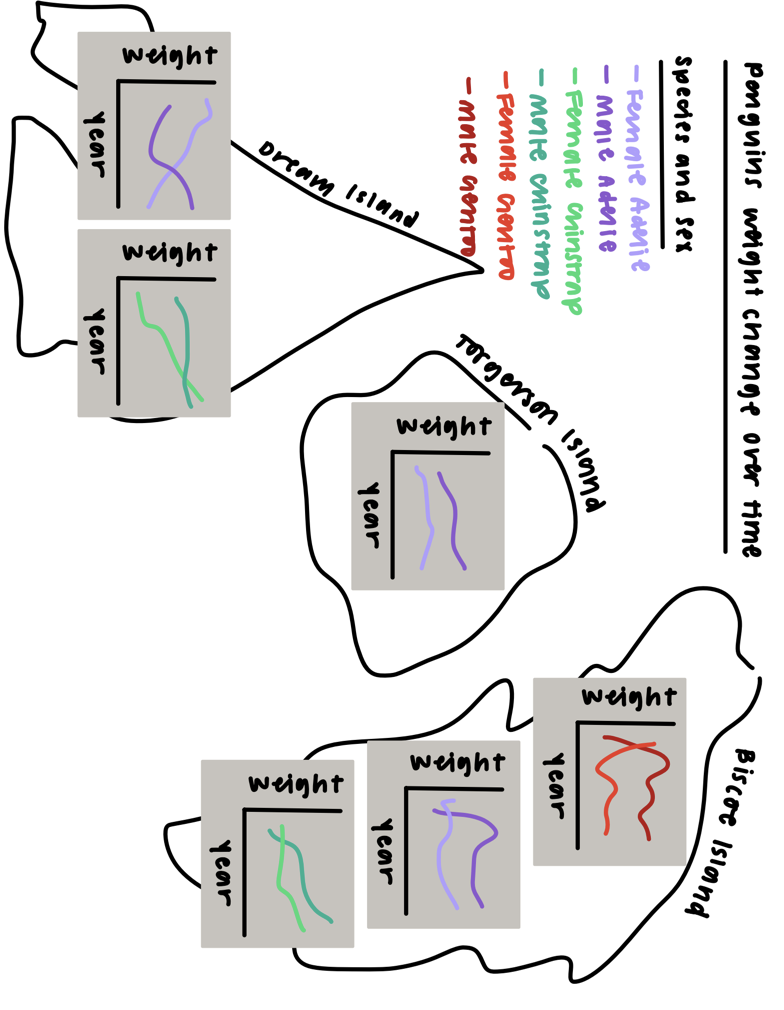 Penguins weight change over time
Species and sex
- Female Adelie
- Male Adelie
- Female Chinstrap
- Male Chinstrap
- Female Gentoo
- Male Gentoo
Biscoe Island
Weight
Year
Weight
Year
Weight
Year
Torgerson Island
Weight
Year
Dream Island
Weight
Year
Weight
Year